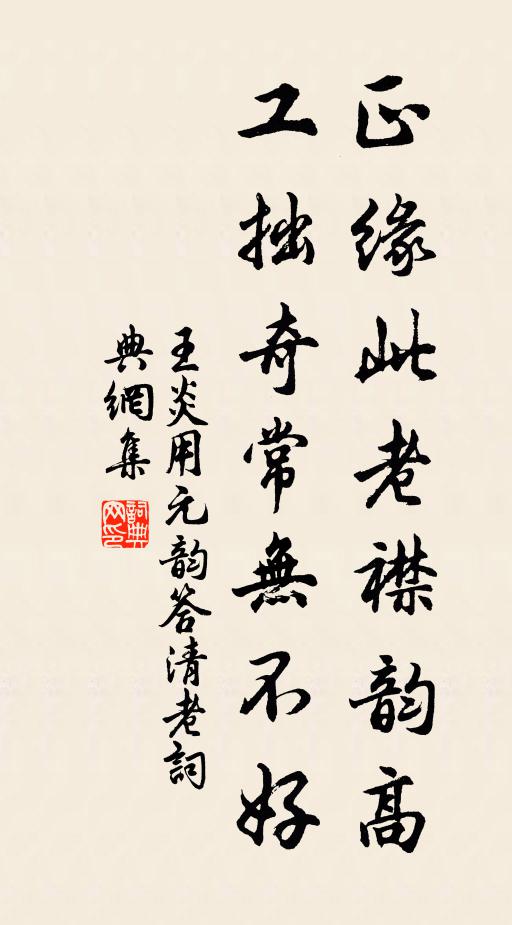 正缘此老襟韵高
工拙奇常無不好
王炎用元韵答清老詞
典網集
詞典网印